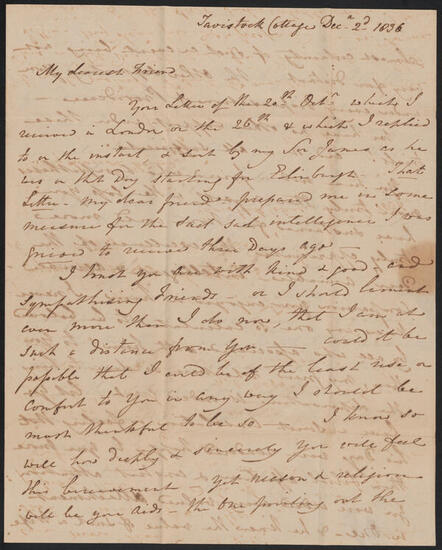 Tavistock Cottage Decr 2d 1836
My dearest Friend
Your Letter of the 20th Octr which I
received in London on the 26th & which I replied
to on the instant & sent by my Son James as he
was on that Day starting for Edinburgh - That
Letter my dear friend prepared me in some
measure for the last sad intelligence I was
grieved to receive three Days ago -
I trust you are with kind & good and
Sympathising Friends - or I should lament
even more than I do now, that I am at
such a distance from You - could it be
possible that I could be of the least use or
comfort to You in any way I should be
most thankful to be so I know so
well how deeply & sincerely You will feel
this bereavement - yet reason & religion
will be your aids - the One pointing out the